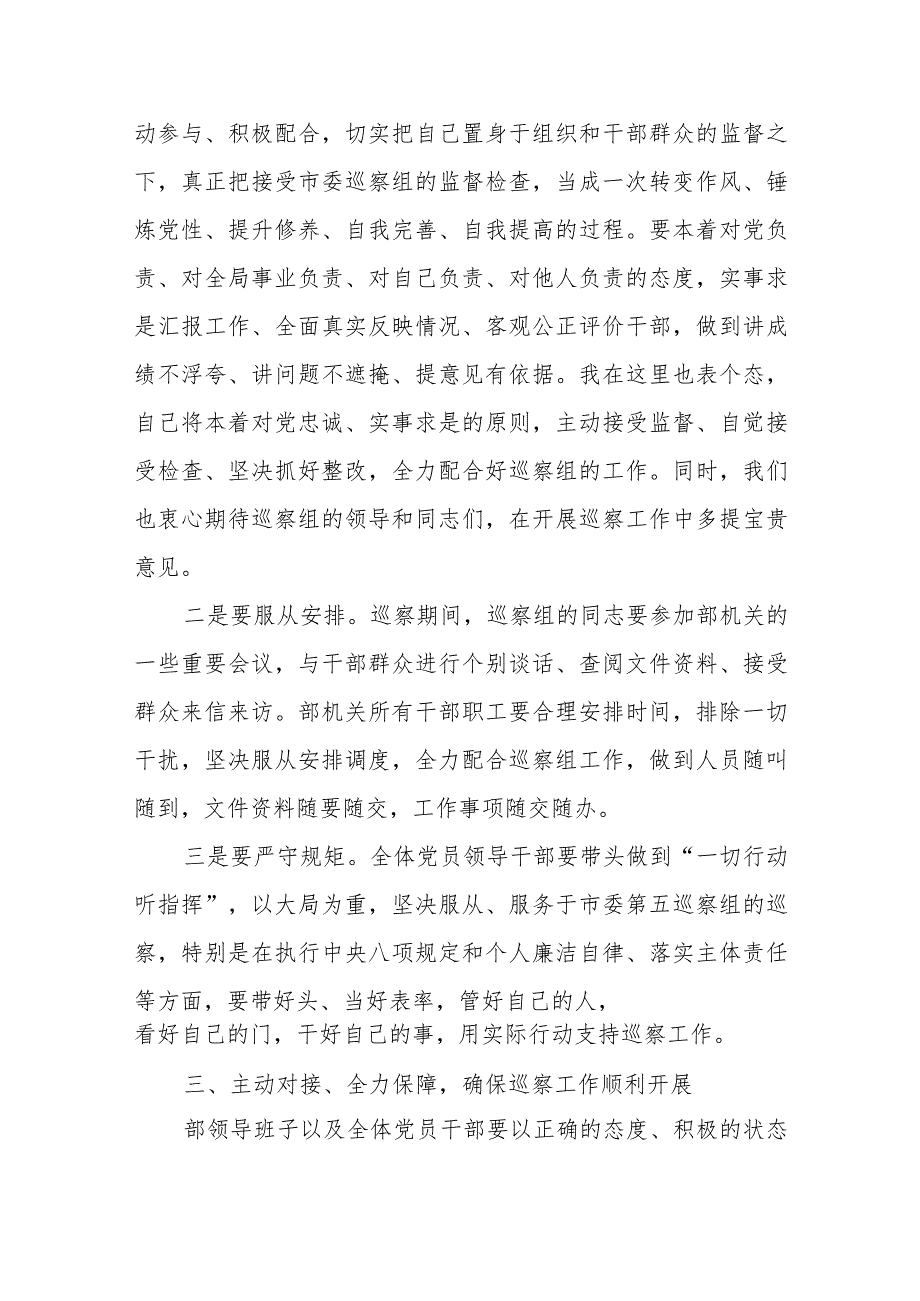 动参与、积极配合，切实把自己置身于组织和干部群众的监督之
下，真正把接受市委巡察组的监督检查，当成一次转变作风、锤
炼党性、提升修养、自我完善、自我提高的过程。要本着对党负
责、对全局事业负责、对自己负责、对他人负责的态度，实事求
是汇报工作、全面真实反映情况、客观公正评价干部，做到讲成
绩不浮夸、讲问题不遮掩、提意见有依据。我在这里也表个态，
自己将本着对党忠诚、实事求是的原则，主动接受监督、自觉接
受检查、坚决抓好整改，全力配合好巡察组的工作。同时，我们
也衷心期待巡察组的领导和同志们，在开展巡察工作中多提宝贵
意见。
二是要服从安排。巡察期间，巡察组的同志要参加部机关的
一些重要会议，与干部群众进行个别谈话、查阅文件资料、接受
群众来信来访。部机关所有干部职工要合理安排时间，排除一切
干扰，坚决服从安排调度，全力配合巡察组工作，做到人员随叫
随到，文件资料随要随交，工作事项随交随办。
三是要严守规矩。全体党员领导干部要带头做到“一切行动
听指挥”，以大局为重，坚决服从、服务于市委第五巡察组的巡
察，特别是在执行中央八项规定和个人廉洁自律、落实主体责任
等方面，要带好头、当好表率，管好自己的人，
看好自己的门，干好自己的事，用实际行动支持巡察工作。
三、主动对接、全力保障，确保巡察工作顺利开展
部领导班子以及全体党员干部要以正确的态度、积极的状态